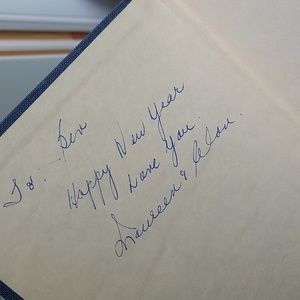 To: Bev
Happy New Year
Love You.
Maureen & Alan.